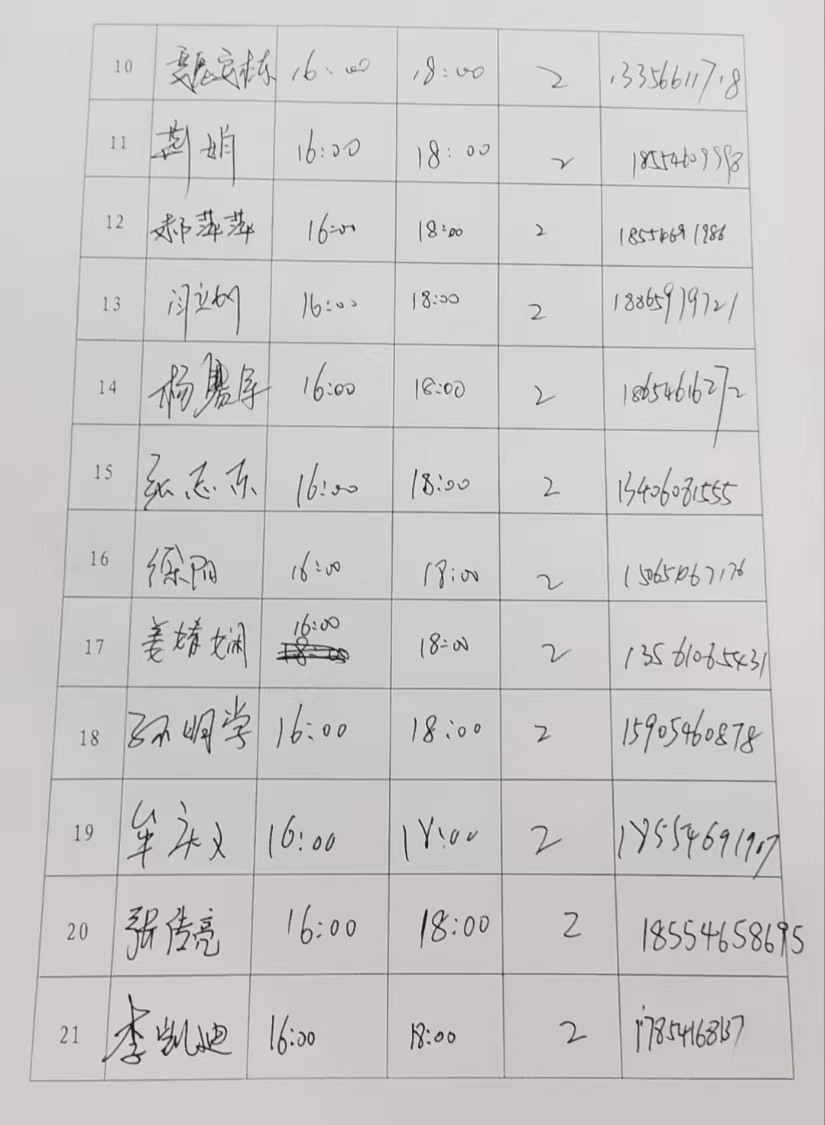 10 16:00 18:00 2 13356611718
11 荆娟 16:00 18:00 2 18554609998
12 郝萍萍 16:00 18:00 2 18554691986
13 闫立 16:00 18:00 2 18865979721
14 杨 16:00 18:00 2 18654616272
15 张志东 16:00 18:00 2 13406081555
16 徐阳 16:00 18:00 2
17 姜婧娴 16:00 18:00 2 13561065431
18 孙明学 16:00 18:00 2 15905460878
19 牟庆义 16:00 18:00 2 18554691907
20 张传亮 16:00 18:00 2 18554658695
21 李凯迪 16:00 18:00 2 17854168137